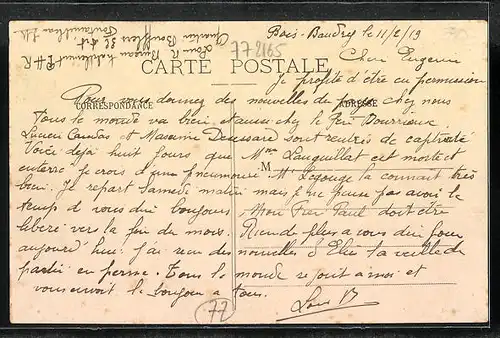 Bois-Baudry le 11/2/19
Louis B
Bureau
Quartier Boufflers
Fontainebleau S/M
77 2165
CARTE POSTALE
CORRESPONDANCE
ADRESSE
M
Cher Eugène
Je profite d'être en permission
Pour vous donner des nouvelles de chez nous
Tous le monde va bien, et aussi chez le Père Dourrieux
Lucien et Maxime Deussard sont rentrés de captivité
Voice déjà huit jours que Mme Lauquillat est morte et
enterré je crois d'une pneumonie. Mr Legouge la connait très
bien. Je repart Samedi matin mais je ne pense pas avoir le
temps d vous dire bonjour. Mon Frère Paul doit être
libéré vers la fin du mois. Rien de plus a vous dire pour
aujourd'hui. J'ai reçu des nouvelles d'Elie la veille de
partir en perme. Tous le monde se joint à moi et
vous envoit le bonjour a tous.
Louis B
72